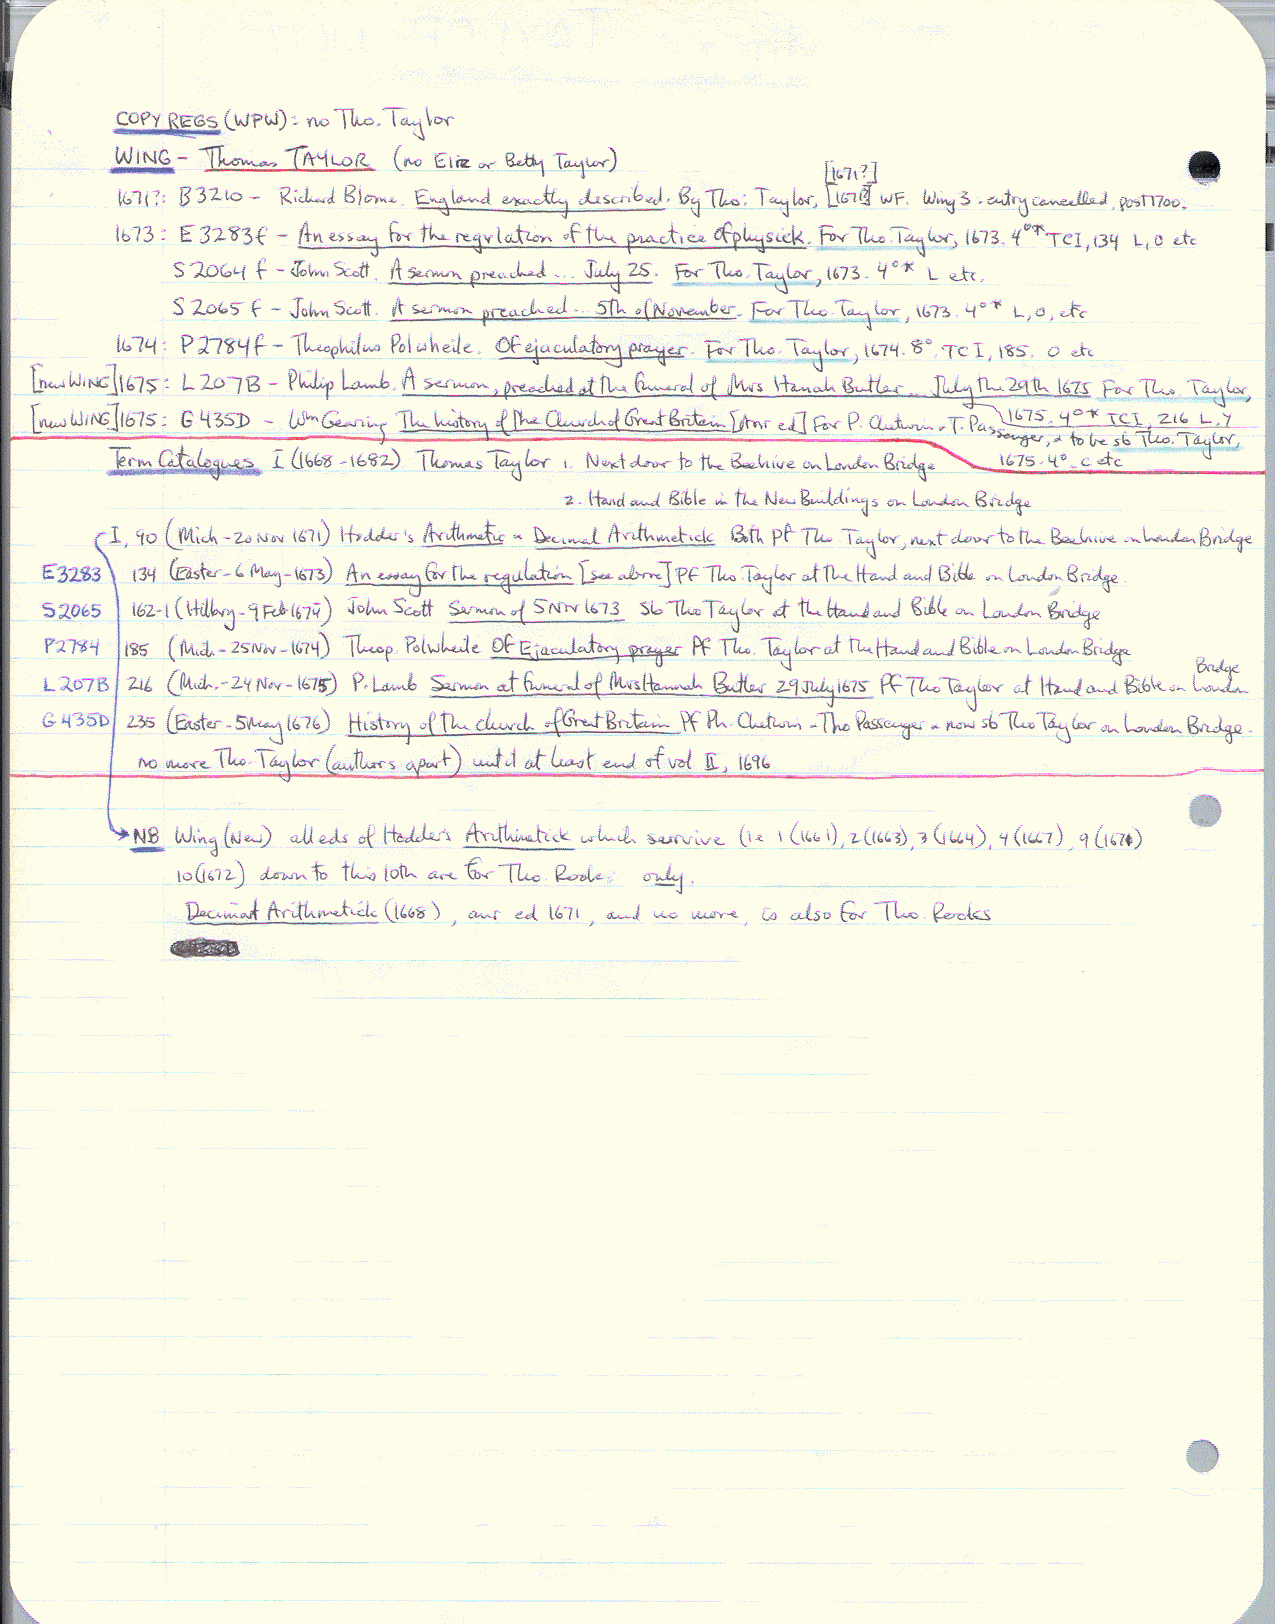 COPY REGS (WPW): no Tho. Taylor
WING - Thomas TAYLOR (no Eliz or Betty Taylor)
[1671?]
1671?: B3210 - Richard Blome. England exactly described. By Tho: Taylor, [1671?] WF. Wing 3 - entry cancelled, post 1700.
1673: E 3283f - An essay for the regulation of the practice of physick. For Tho. Taylor, 1673. 4°* TCI, 134 L, O etc
S 2064 f - John Scott. A sermon preached... July 25. For Tho. Taylor, 1673. 4°* L etc.
S 2065 f - John Scott. A sermon preached... 5th of November. For Tho. Taylor, 1673. 4°* L, O, etc
1674: P2784f - Theophilus Polwheile. Of ejaculatory prayer. For Tho. Taylor, 1674. 8°. TC I, 185. O etc
[new WING] 1675: L 207B - Philip Lamb. A sermon, preached at the funeral of Mrs Hanah Butler... July the 29th 1675 For Tho. Taylor,
1675. 4°* TCI, 216 L, Y
[new WING] 1675: G 435D - Wm Gearing The history of the Church of Great Britain [Anr ed] For P. Chetwin & T. Passenger, & to be sb Tho. Taylor,
1675. 4°. C etc
Term Catalogues I (1668-1682) Thomas Taylor 1. Next door to the Beehive on London Bridge
2. Hand and Bible in the New Buildings on London Bridge
I, 90 (Mich - 20 Nov 1671) Hodder's Arithmetic & Decimal Arithmetick Both pf Tho. Taylor, next door to the Beehive on London Bridge
E3283 134 (Easter - 6 May - 1673) An essay for the regulation [see above] Pf Tho. Taylor at the Hand and Bible on London Bridge.
S2065 162-1 (Hillary - 9 Feb 1674) John Scott Sermon of 5 Nov 1673 Sb Tho Taylor at the Hand and Bible on London Bridge
P2784 185 (Mich - 25 Nov - 1674) Theop. Polwheile Of Ejaculatory prayer Pf Tho. Taylor at the Hand and Bible on London Bridge
L 207B 216 (Mich. - 24 Nov - 1675) P. Lamb Sermon at funeral of Mrs Hannah Butler 29 July 1675 Pf Tho Taylor at Hand and Bible on London Bridge
G 435D 235 (Easter - 5 May 1676) History of the church of Great Britain Pf Ph. Chetwin & Tho Passenger & now sb Tho Taylor on London Bridge.
no more Tho. Taylor (authors apart) until at least end of vol II, 1696
NB Wing (New) all eds of Hodder's Arithmetick which survive (ie 1 (1661), 2 (1663), 3 (1664), 4 (1667), 9 (1671)
10 (1672) down to this 10th are for Tho. Rooks only.
Decimal Arithmetick (1668), anr ed 1671, and no more, is also for Tho. Rooks